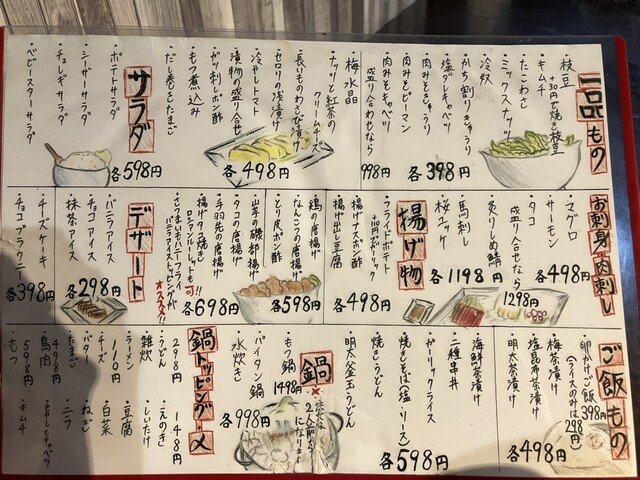 一品もの
・枝豆
+30円で焼き枝豆
・キムチ
・たこわさ
・ミックスナッツ
・冷奴
・かち割りきゅうり
・塩ダレキャベツ
・肉みそきゅうり
・肉みそピーマン
・肉みそキャベツ
各398円
盛り合わせなら
998円
・梅水晶
・ナッツと紅茶の
クリームチーズ
・長いものわさび漬け
・セロリの浅漬け
・冷やしトマト
・漬物の盛り合せ
・ガツ刺しポン酢
・もつ煮込み
・だし巻きたまご
各498円
サラダ
・ポテトサラダ
・シーザーサラダ
・チョレギサラダ
・ベビースターサラダ
各598円
お刺身・肉刺し
・マグロ
・サーモン
・タコ
各498円
盛り合せなら
1298円
・炙りしめ鯖
・馬刺し
・桜ユッケ
各1198円
揚げ物
・フライドポテト
・揚げナスポン酢
・揚げ出し豆腐
各498円
・鶏の唐揚げ
・なんこつの唐揚げ
・とり皮ポン酢
各598円
・山芋の磯部揚げ
・タコの唐揚げ
・手羽先の唐揚げ
・揚げタコ焼き
ロシアンルーレットも可!!
・さつまいもハニーフライ
バニラアイストッピングが
オススメ!!
各698円
デザート
・バニラアイス
・チョコアイス
・抹茶アイス
各298円
・チーズケーキ
・チョコブラウニー
各398円
ご飯もの
・卵かけご飯 398円
(ライスのみは298円)
・梅茶漬け
・塩昆布茶漬け
・明太茶漬け
各498円
・海鮮茶漬け
・二種串丼
・ガーリックライス
・焼きそば(塩・ソース)
・焼きうどん
・明太釜玉うどん
各598円
鍋
・もつ鍋
1498円
・パイタン鍋
・水炊き
各998円
鍋トッピング・〆
298円
・うどん
・雑炊
・ラーメン
110円
・チーズ
・バター
・たまご
498円
・鳥肉
598円
・もつ
148円
・えのき
・しいたけ
・豆腐
・白菜
・ねぎ
・ニラ
・キムチ